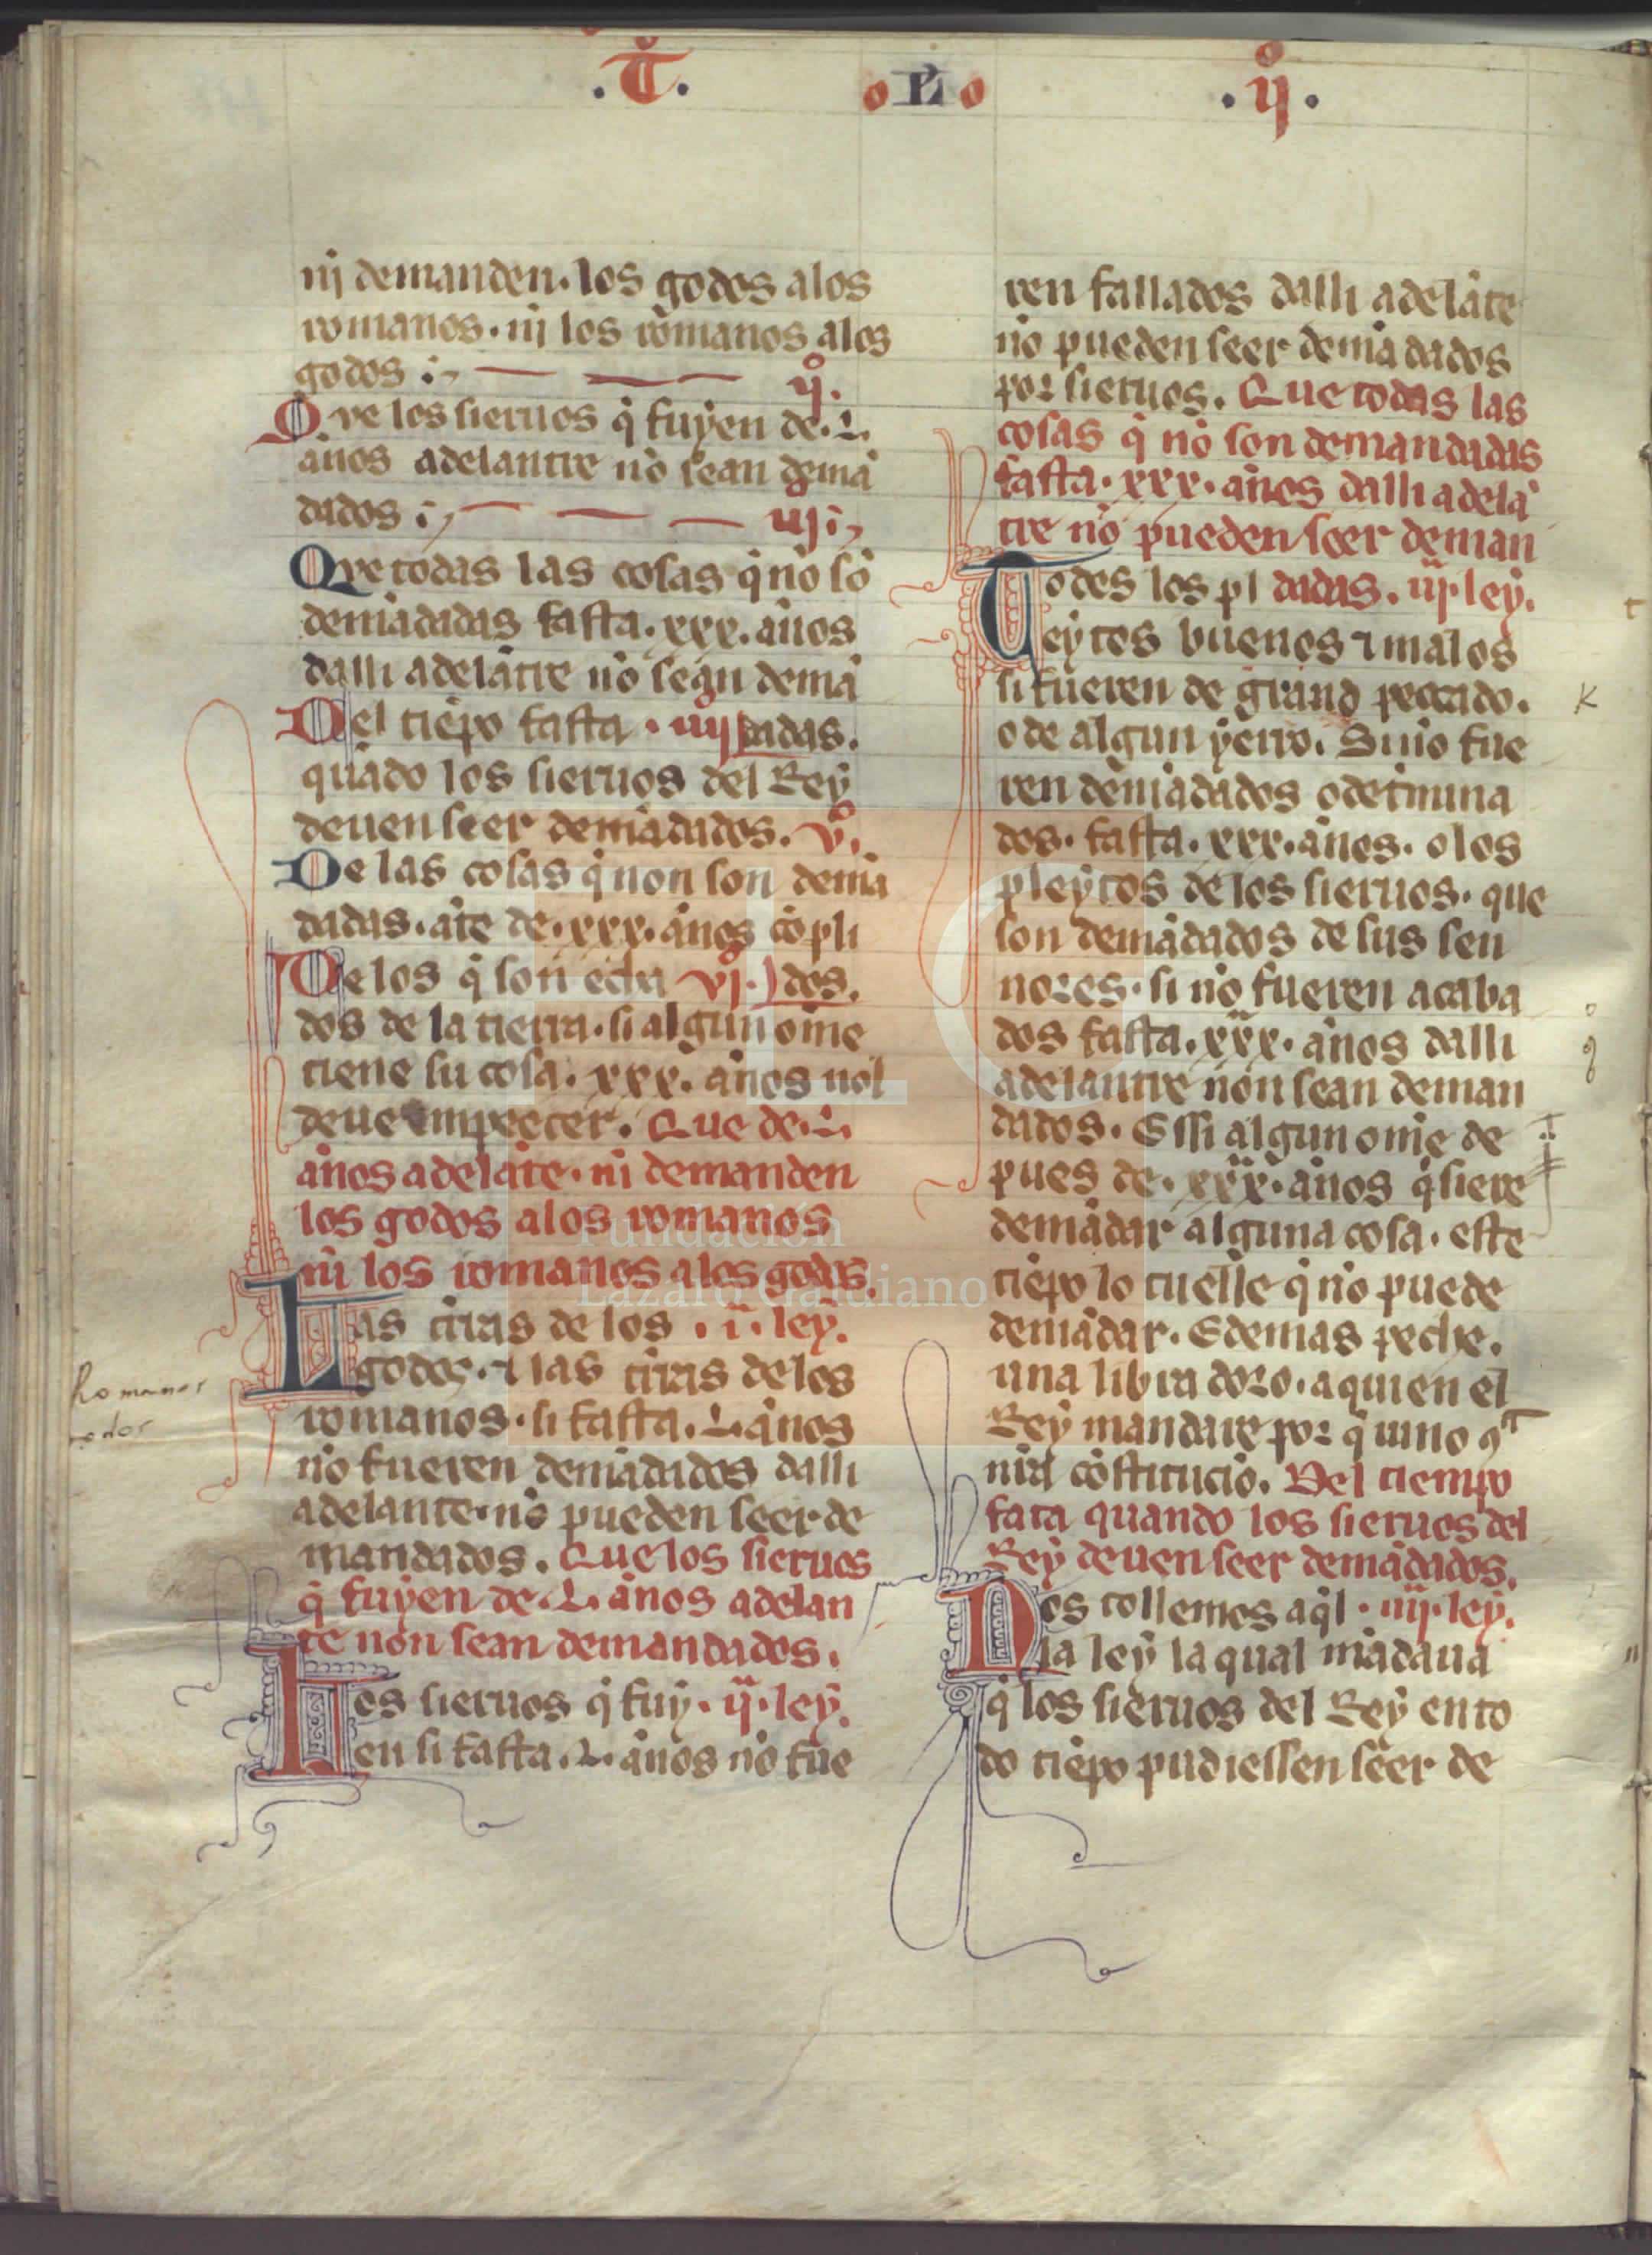 .T̊. L .ij̊.
nj demanden. los godos alos
romanos. nj los romanos alos
godos :~ ij̊.
Que los sieruos q̇ fuyen de .L.
años adelantre nō sean demā
dados :~ iij :~
Que todas las cosas q̇ nō sō
demādadas fasta .xxx. años
dalli adelātre nō sean demā
Del tiēpo fasta . iiij dadas.
quādo los sieruos del Rey
deuen seer demādados. v̊.
De las cosas q̇ non son demā
dadas. āte de .xxx. años cōpli
De los q̇ son echa vj̊. dos.
dos de la tierra. si algun ome
tiene su cosa .xxx. años nol
deue empeecer. Que de .L.
años adelāte. ni demanden
los godos alos romanos
nī los romanos alos godos.
Las t̄ras de los . i̊. ley.
godos. ⁊ las t̄ras de los
romanos. si fasta .L. años
nō fueren demādados dalli
adelante. nō pueden seer de
mandados. Que los sieruos
q̇ fuyen de .L. años adelan
te non sean demandados.
Los sieruos q̇ fuy. ij̊. ley.
en si fasta .L. años nō fue
ren fallados dalli adelāte
nō pueden seer demādados
por sieruos. Que todas las
cosas q̇ nō son demandadas
fasta .xxx. años dalli adelā
tre nō pueden seer deman
Todos los pl dadas. iij. ley.
eytos buenos ⁊ malos
si fueren de grand peccado.
o de algun yerro. Si nō fue
ren demādados o det̄mina
dos. fasta .xxx. años. o los
pleytos de los sieruos. que
son demādados de sus sen
nores. si nō fueren acaba
dos fasta .xxx. años dalli
adelantre non sean deman
dados. E ssi algun ome de
pues de .xxx. años q̇siere
demādar alguna cosa. este
tiēpo lo tuelle q̇ nō puede
demādar. E demas peche.
una libra doro. a quien el
Rey mandare por q̇ uino ꝯt
nr̄a cōstitucio. Del tiempo
fata quando los sieruos del
Rey deuen seer demādados.
Nos tollemos aq̇l . iiij. ley.
la ley la qual mādaua
q̇ los sieruos del Rey en to
do tiēpo pudiessen seer de
Romanos
Fundación
Lázaro Galdiano